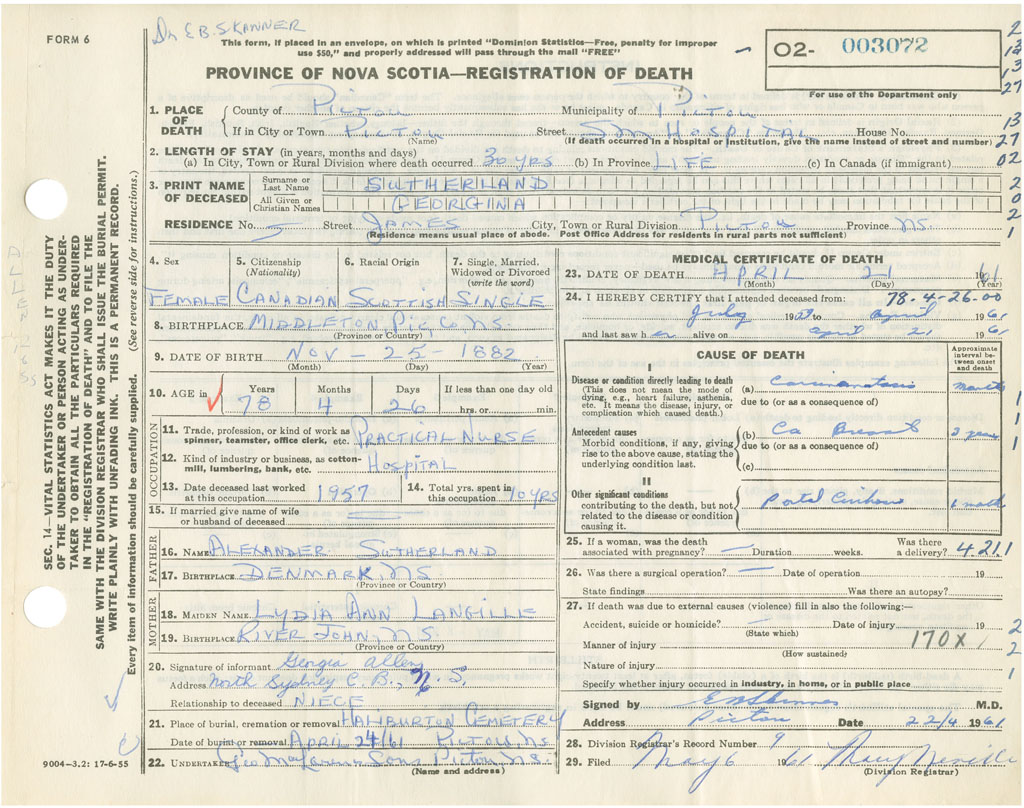 FORM 6
Dr E B. SKANNER
This form, if placed in an envelope, on which is printed "Dominion Statistics—Free, penalty for improper
use $50," and properly addressed will pass through the mail "FREE"
02- 003072
For use of the Department only
PROVINCE OF NOVA SCOTIA—REGISTRATION OF DEATH
1. PLACE OF DEATH
County of PICTOU Municipality of PICTOU
If in City or Town PICTOU Street SM HOSPITAL House No.
(Name) (If death occurred in a hospital or institution, give the name instead of street and number)
2. LENGTH OF STAY (in years, months and days)
(a) In City, Town or Rural Division where death occurred 30 yrs (b) In Province LIFE (c) In Canada (if immigrant)
3. PRINT NAME OF DECEASED
Surname or Last Name SUTHERLAND
All Given or Christian Names GEORGINA
RESIDENCE No. 5 Street JAMES City, Town or Rural Division PICTOU Province NS
(Residence means usual place of abode. Post Office Address for residents in rural parts not sufficient)
4. Sex FEMALE
5. Citizenship (Nationality) CANADIAN
6. Racial Origin SCOTTISH
7. Single, Married, Widowed or Divorced (write the word) SINGLE
8. BIRTHPLACE MIDDLETON Pic. Co. NS
(Province or Country)
9. DATE OF BIRTH NOV - 25 - 1882
(Month) (Day) (Year)
10. AGE in Years 78 Months 4 Days 26 If less than one day old hrs. or min.
OCCUPATION
11. Trade, profession, or kind of work as spinner, teamster, office clerk, etc. PRACTICAL NURSE
12. Kind of industry or business, as cotton-mill, lumbering, bank, etc. HOSPITAL
13. Date deceased last worked at this occupation 1957
14. Total yrs. spent in this occupation 10 YRS
15. If married give name of wife or husband of deceased
FATHER
16. NAME ALEXANDER SUTHERLAND
17. BIRTHPLACE DENMARK, NS
(Province or Country)
MOTHER
18. MAIDEN NAME LYDIA ANN LANGILLE
19. BIRTHPLACE RIVER JOHN, NS.
(Province or Country)
20. Signature of informant Georgia Allen
Address North Sydney C.B., N.S.
Relationship to deceased NIECE
21. Place of burial, cremation or removal HALIBURTON CEMETERY
Date of burial or removal APRIL 24/61 PICTOU NS
22. UNDERTAKER Geo Sons Pictou NS.
(Name and address)
MEDICAL CERTIFICATE OF DEATH
23. DATE OF DEATH APRIL 21 1961
(Month) (Day) (Year)
24. I HEREBY CERTIFY that I attended deceased from: 78-4-26-00
July 19 to April 1961
and last saw her alive on April 21 1961
CAUSE OF DEATH
Approximate interval between onset and death
I
Disease or condition directly leading to death
(This does not mean the mode of dying, e.g., heart failure, asthenia, etc. It means the disease, injury, or complication which caused death.)
(a) Carcinomatosis months
due to (or as a consequence of)
Antecedent causes
Morbid conditions, if any, giving rise to the above cause, stating the underlying condition last.
(b) Ca Breast years
due to (or as a consequence of)
(c)
II
Other significant conditions
contributing to the death, but not related to the disease or condition causing it.
Portal Cirrhosis 1 month
25. If a woman, was the death associated with pregnancy? — Duration weeks. Was there a delivery? 4.211
26. Was there a surgical operation? — Date of operation 19
State findings Was there an autopsy?
27. If death was due to external causes (violence) fill in also the following:—
Accident, suicide or homicide? — Date of injury 19
(State which)
Manner of injury 170X
(How sustained)
Nature of injury
Specify whether injury occurred in industry, in home, or in public place
Signed by M.D.
Address Pictou Date 22/4 1961
28. Division Registrar's Record Number 9
29. Filed May 6 1961 Mary
(Division Registrar)
SEC. 14—VITAL STATISTICS ACT MAKES IT THE DUTY
OF THE UNDERTAKER OR PERSON ACTING AS UNDER-
TAKER TO OBTAIN ALL THE PARTICULARS REQUIRED
IN THE "REGISTRATION OF DEATH" AND TO FILE THE
SAME WITH THE DIVISION REGISTRAR WHO SHALL ISSUE THE BURIAL PERMIT.
WRITE PLAINLY WITH UNFADING INK. THIS IS A PERMANENT RECORD.
Every item of information should be carefully supplied. (See reverse side for instructions.)
9004-3.2: 17-6-55
2
13
13
27
13
27
02
2
0
2
1
1
1
1
2
2
1